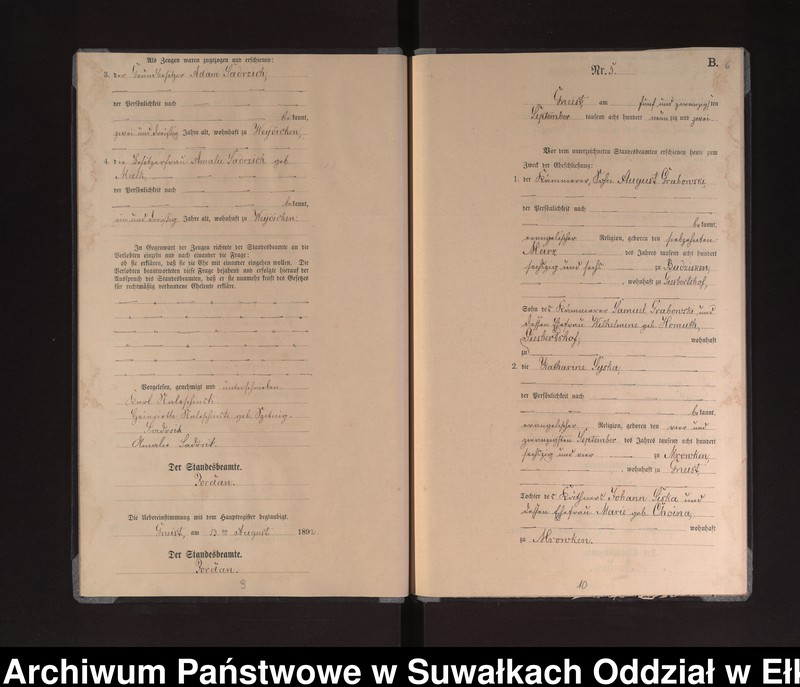 Als Zeugen waren zugezogen und erschienen:
3. der Grundbesitzer Adam Sadrzich,
der Persönlichkeit nach
bekannt,
zwei und dreißig Jahre alt, wohnhaft zu Weydicken,
4. die Besitzerfrau Amalie Sadrzich geb
der Persönlichkeit nach
bekannt,
ein und dreißig Jahre alt, wohnhaft zu Weydicken.
In Gegenwart der Zeugen richtete der Standesbeamte an die
Verlobten einzeln und nach einander die Frage:
ob sie erklären, daß sie die Ehe mit einander eingehen wollen. Die
Verlobten beantworteten diese Frage bejahend und erfolgte hierauf der
Ausspruch des Standesbeamten, daß er sie nunmehr kraft des Gesetzes
für rechtmäßig verbundene Eheleute erkläre.
Vorgelesen, genehmigt und unterschrieben
Karl
geb
Amalie
Der Standesbeamte.
Jordan.
Die Uebereinstimmung mit dem Hauptregister beglaubigt.
Gneist, am 13 ten August 1892
Der Standesbeamte.
Jordan.
9
B. 6
Nr. 5.
Gneist, am fünf und zwanzigsten
September tausend acht hundert neunzig und zwei.
Vor dem unterzeichneten Standesbeamten erschienen heute zum
Zweck der Eheschließung:
1. der Kämmerer, Sohn August Grabowski,
der Persönlichkeit nach
bekannt,
evangelischer Religion, geboren den siebzehnten
März des Jahres tausend acht hundert
sechszig und sechs zu Budzisken,
, wohnhaft zu
Sohn des Kämmerer Samuel Grabowski und
dessen Ehefrau Wilhelmine geb. Homuth,
wohnhaft
zu
2. die Katharine Gyska,
der Persönlichkeit nach
bekannt,
evangelischer Religion, geboren den vier und
zwanzigsten September des Jahres tausend acht hundert
sechszig und vier zu Mrowken,
, wohnhaft zu Gneist,
Tochter des Käthners Johann Gyska und
dessen Ehefrau Marie geb. Choina,
wohnhaft
zu Mrowken.
10
Archiwum Państwowe w Suwałkach Oddział w Ełk